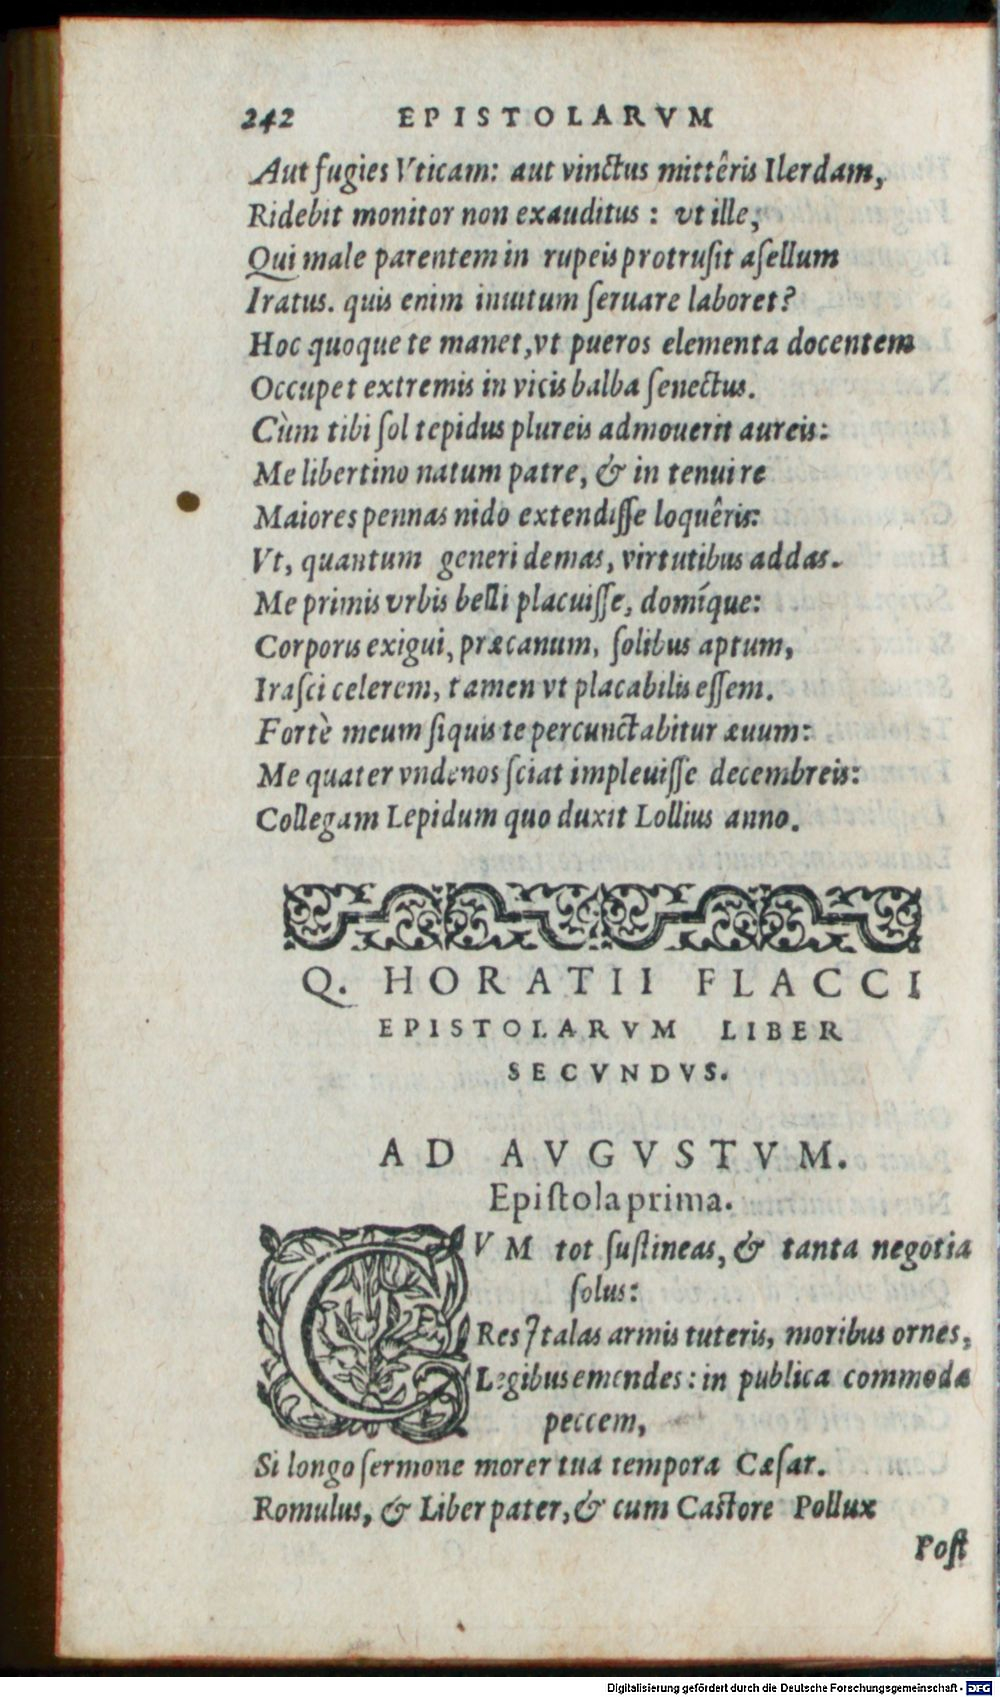 242 EPISTOLARVM
Aut fugies Vticam: aut vinctus mittêris Ilerdam,
Ridebit monitor non exauditus : vt ille,
Qui male parentem in rupeis protrusit asellum
Iratus. quis enim inuitum seruare laboret?
Hoc quoque te manet, vt pueros elementa docentem
Occupet extremis in vicis balba senectus.
Cùm tibi sol tepidus plureis admouerit aureis:
Me libertino natum patre, & in tenui re
Maiores pennas nido extendisse loquêris:
Vt, quantum generi demas, virtutibus addas.
Me primis vrbis belli placuisse, domíque:
Corporis exigui, præcanum, solibus aptum,
Irasci celerem, tamen vt placabilis essem.
Fortè meum siquis te percunctabitur æuum:
Me quater vndenos sciat impleuisse decembreis:
Collegam Lepidum quo duxit Lollius anno.
Q. HORATII FLACCI
EPISTOLARVM LIBER
SECVNDVS.
AD AVGVSTVM.
Epistola prima.
CVM tot sustineas, & tanta negotia
solus:
Res Italas armis tuteris, moribus ornes,
Legibus emendes: in publica commoda
peccem,
Si longo sermone morer tua tempora Cæsar.
Romulus, & Liber pater, & cum Castore Pollux
Post
Digitalisierung gefördert durch die Deutsche Forschungsgemeinschaft - DFG